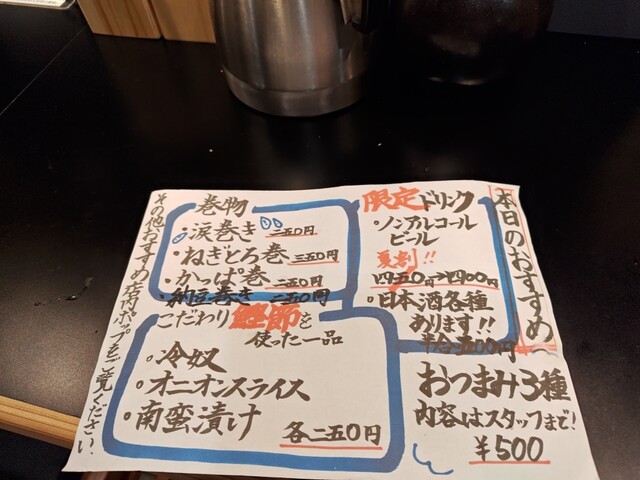 本日のおすすめ
限定ドリンク
・ノンアルコール
ビール
夏割!!
四五〇円→四〇〇円
・日本酒各種
あります!!
半合五〇〇円〜
巻物
・涙巻き 二五〇円
・ねぎとろ巻 三五〇円
・かっぱ巻 二五〇円
・納豆巻き 二五〇円
こだわり鰹節を
使った一品
・冷奴
・オニオンスライス
・南蛮漬け
各二五〇円
おつまみ3種
内容はスタッフまで!
¥500
その他おすすめ店内ポップをご覧ください.